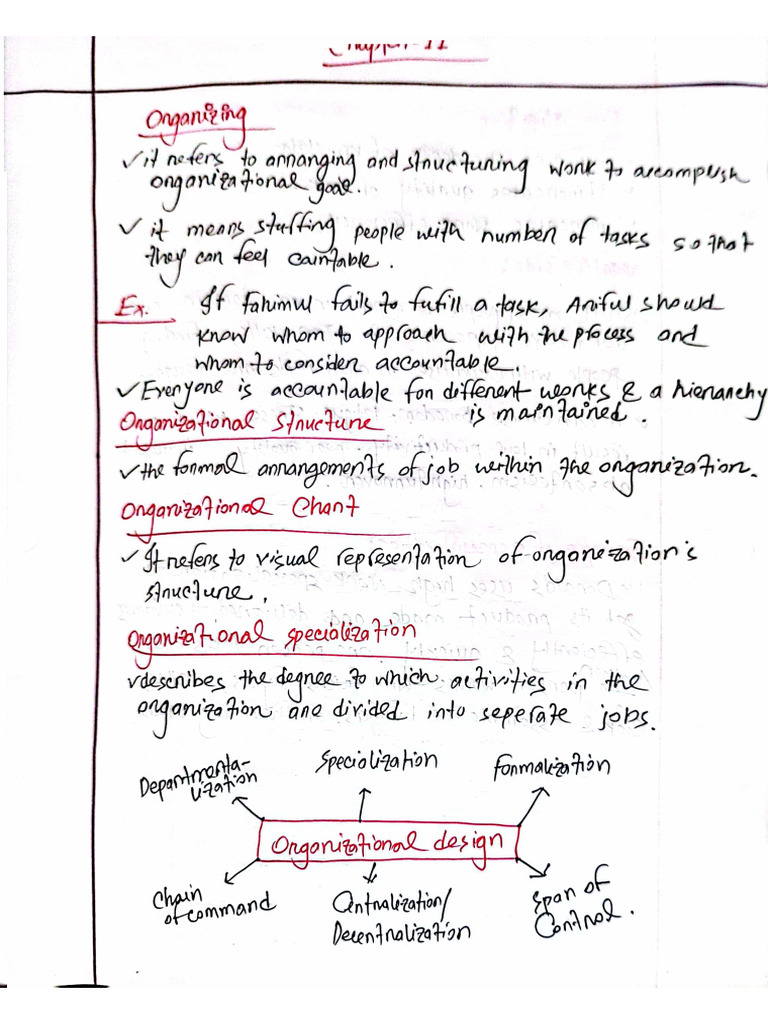 Chapter-11
Organizing
✓ it refers to arranging and structuring work to accomplish
organizational goal.
✓ it means stuffing people with number of tasks so that
they can feel
Ex. If Fahimul fails to fufill a task, Ariful should
know whom to approach with the process and
whom to consider accountable.
✓ Everyone is accountable for different works & a hierarchy
is maintained.
Organizational structure
✓ the formal arrangements of job within the organization.
Organizational Chart
✓ It refers to visual representation of organization's
structure.
Organizational specialization
✓ describes the degree to which activities in the
organization are divided into seperate jobs.
Departmenta-
lization
Specialization
Formalization
Organizational design
Chain
of command
Centralization/
Decentralization
Span of
Control.